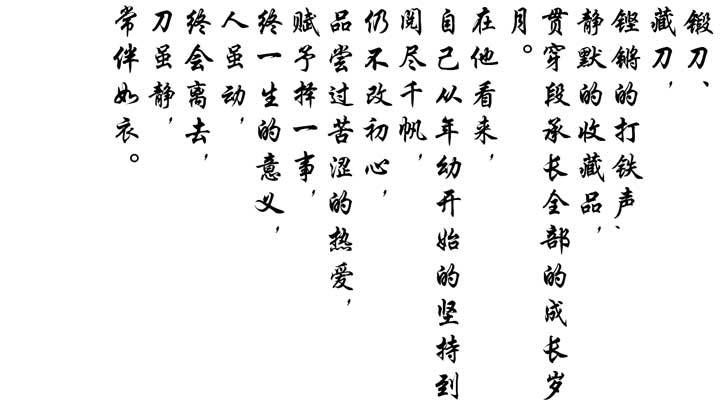 锻刀、
藏刀，
铿锵的打铁声、
静默的收藏品，
贯穿段承长全部的成长岁
月。
在他看来，
自己从年幼开始的坚持到
阅尽千帆，
仍不改初心，
品尝过苦涩的热爱，
赋予择一事，
终一生的意义，
人虽动，
终会离去，
刀虽静，
常伴如衣。